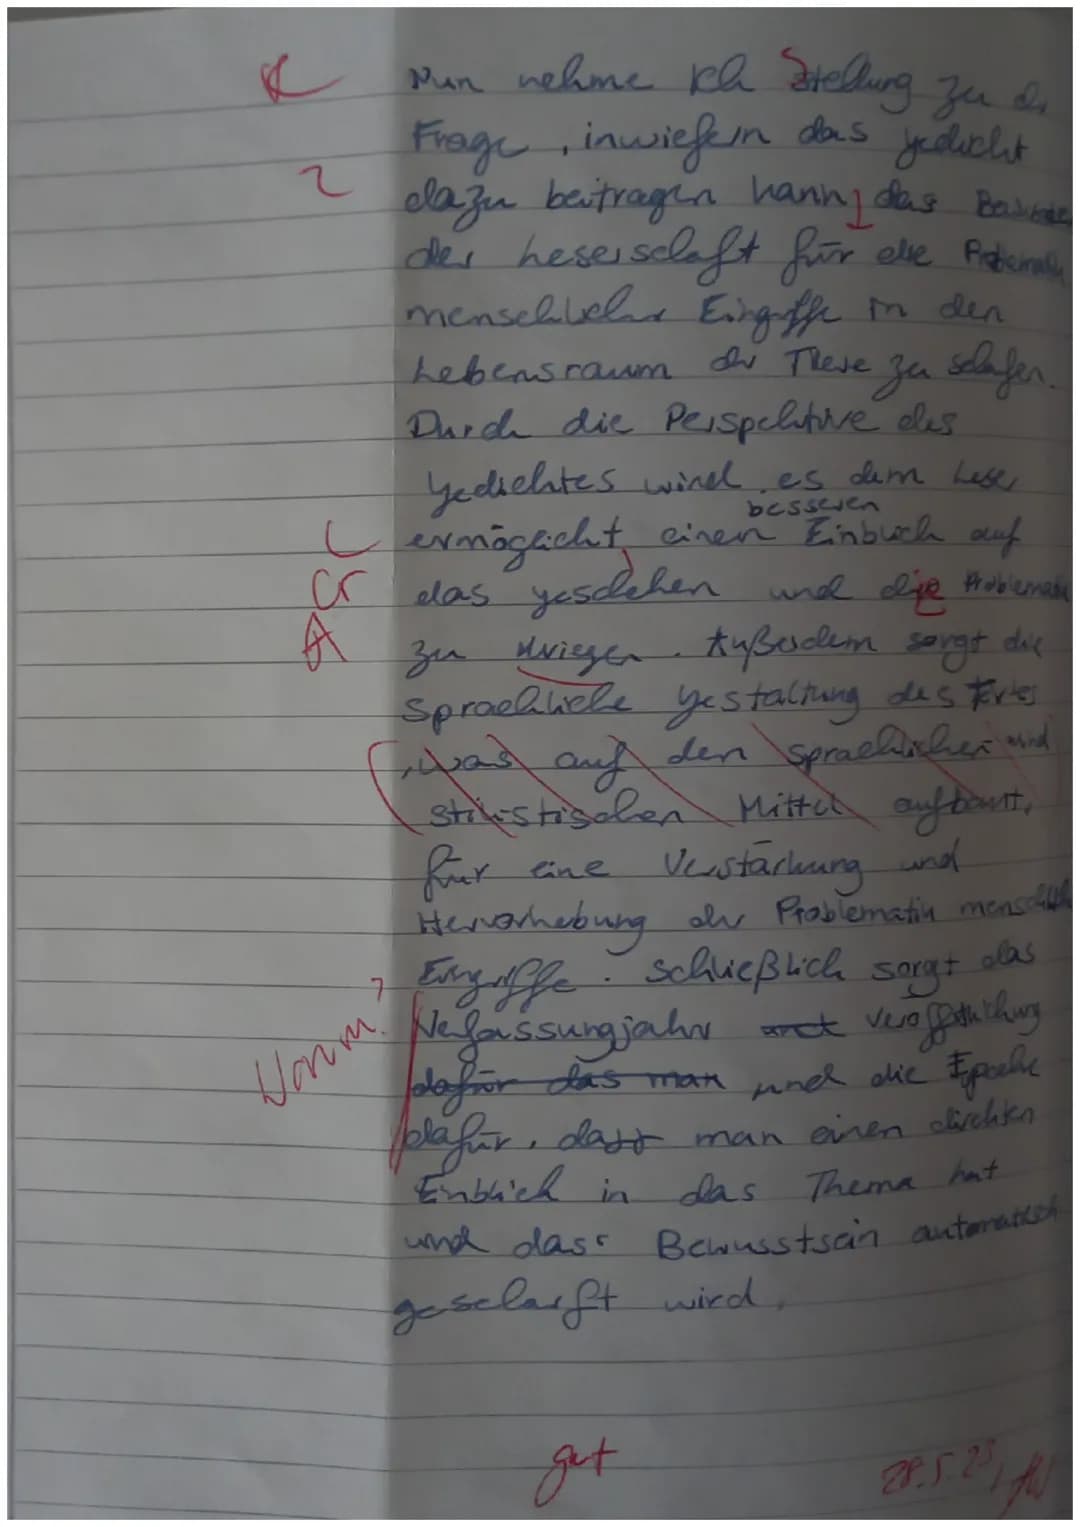 R Nun nehme ich Stellung zu der
Frage, inwiefern das Gedicht
Z dazu beitragen kann, das
der Leserschaft für die Problematik
menschlicher Eingriffe in den
Lebensraum der Tiere zu schafen.
Durch die Perspektive des
Gedichtes wird es dem Leser
besseren
ermöglicht, einen Einblick auf
Gr das Geschehen und die Problematik
A zu kriegen. Außerdem sorgt die
sprachliche Gestaltung des Textes
, was auf den sprachlichen und
stilistischen Mittel aufbaut,
für eine Verstärkung und
Hervorhebung der Problematik menschlich
Eingriffe. Schließlich sorgt das
Warum? Verfassungjahr Veröffentlichung
dafür das man und die Epoche
dafür, dass man einen direkten
Einblick in das Thema hat
und das Bewusstsein automatisch
geschärft wird.
gut
28.5.23,